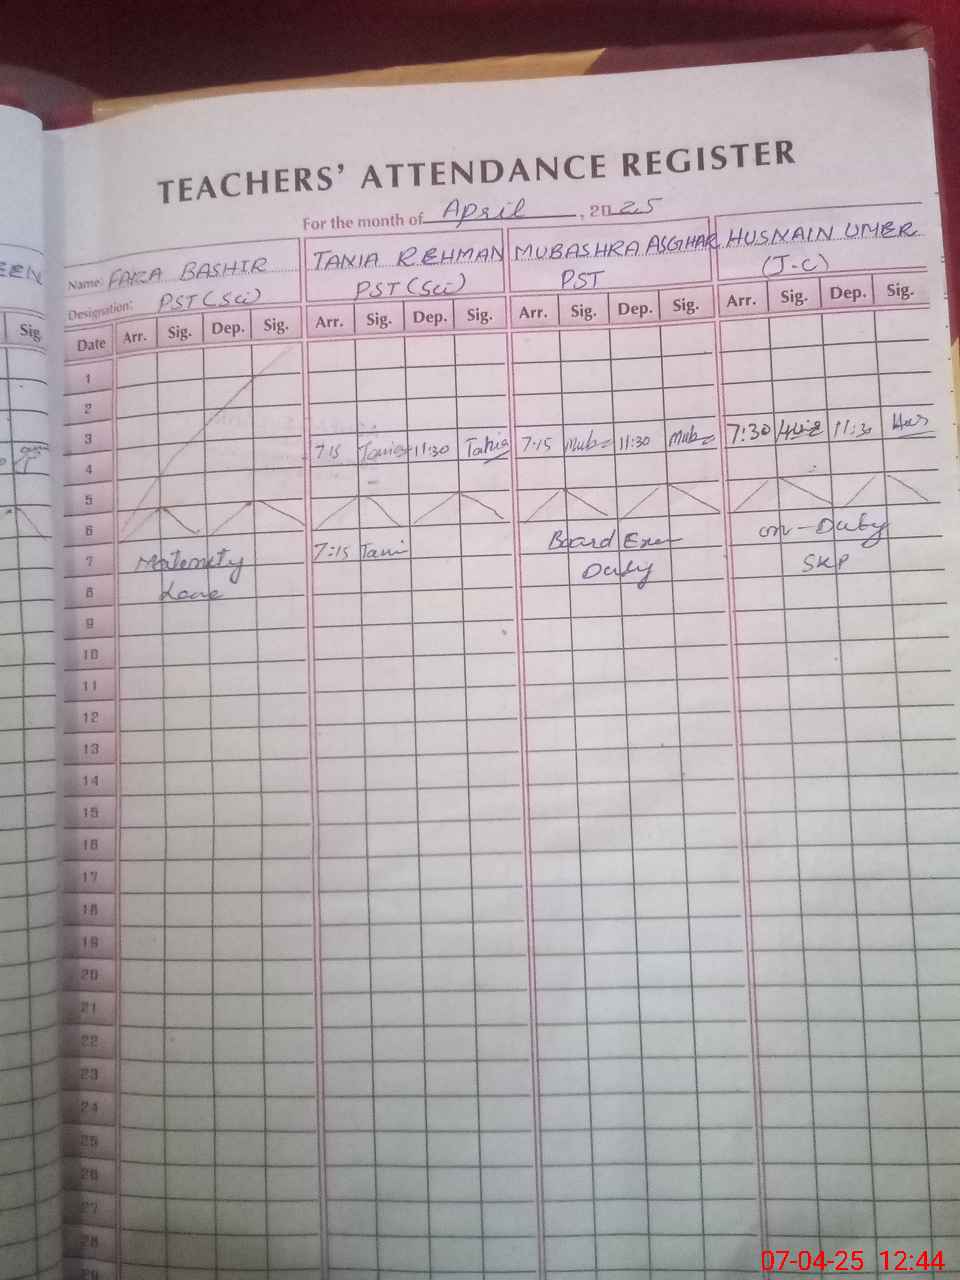 TEACHERS' ATTENDANCE REGISTER
For the month of April, 2025
EEN
Name: FAKA BASHIR TANIA REHMAN MUBASHRA ASGHAR HUSNAIN UMER
Designation: PST (Sci) PST (Sci) PST (J-C)
Sig. Date Arr. Sig. Dep. Sig. Arr. Sig. Dep. Sig. Arr. Sig. Dep. Sig. Arr. Sig. Dep. Sig.
1
2
3
4 7:15 Tania 11:30 Tania 7:15 Mub 11:30 Mub 7:30 11:30 Hus
5
6
7 Maternity 7:15 Tani Board Exam on-Duty
8 Leave Duty SKP
9
10
11
12
13
14
15
16
17
18
19
20
21
22
23
24
25
26
27
28
29
07-04-25 12:44